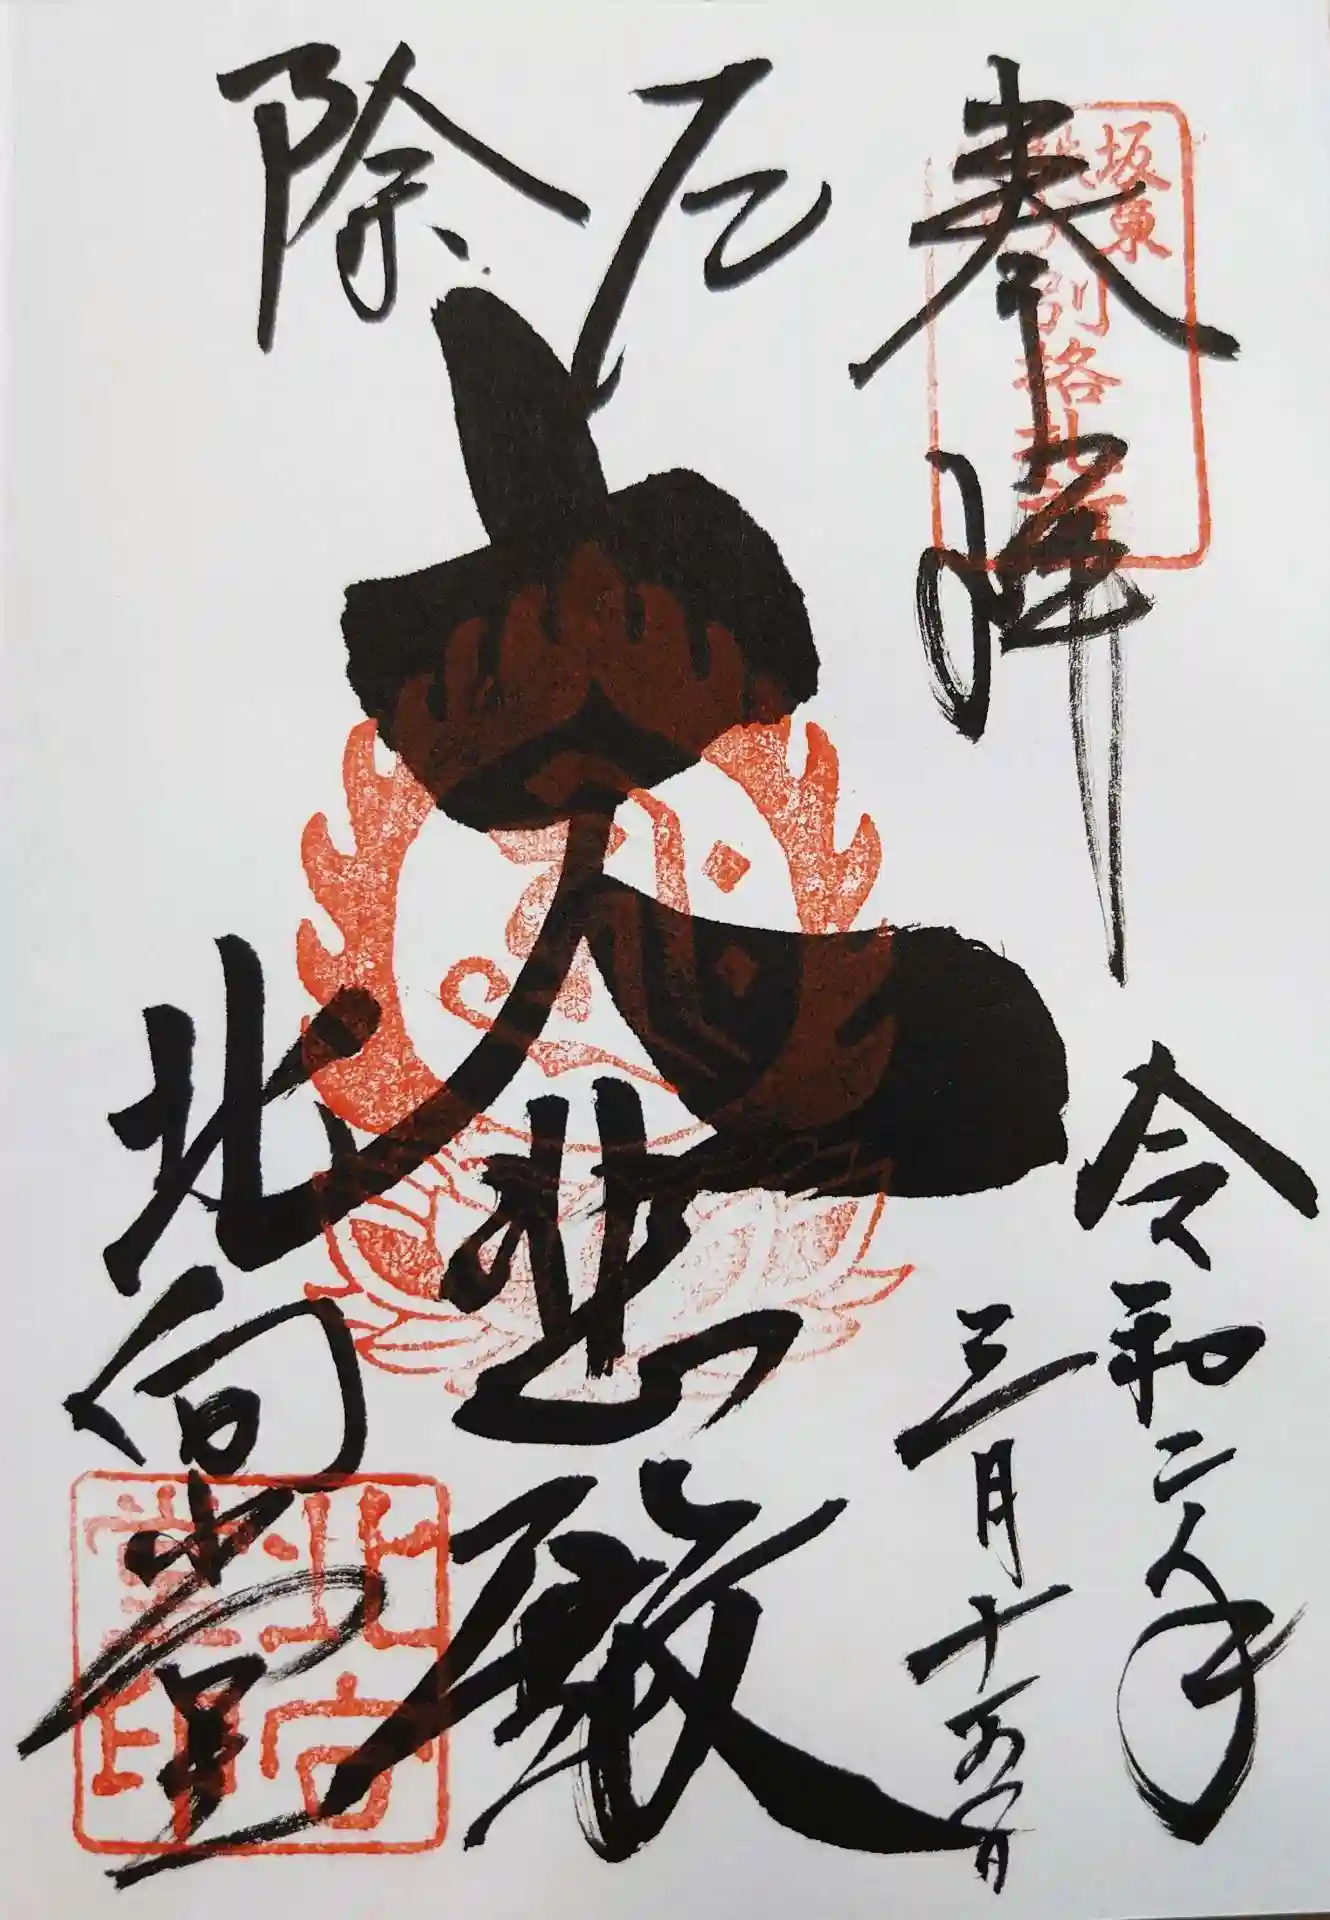 奉拝
坂東
別格札所
令和二年
三月十五日
厄除
大悲殿
北向堂
北向堂印